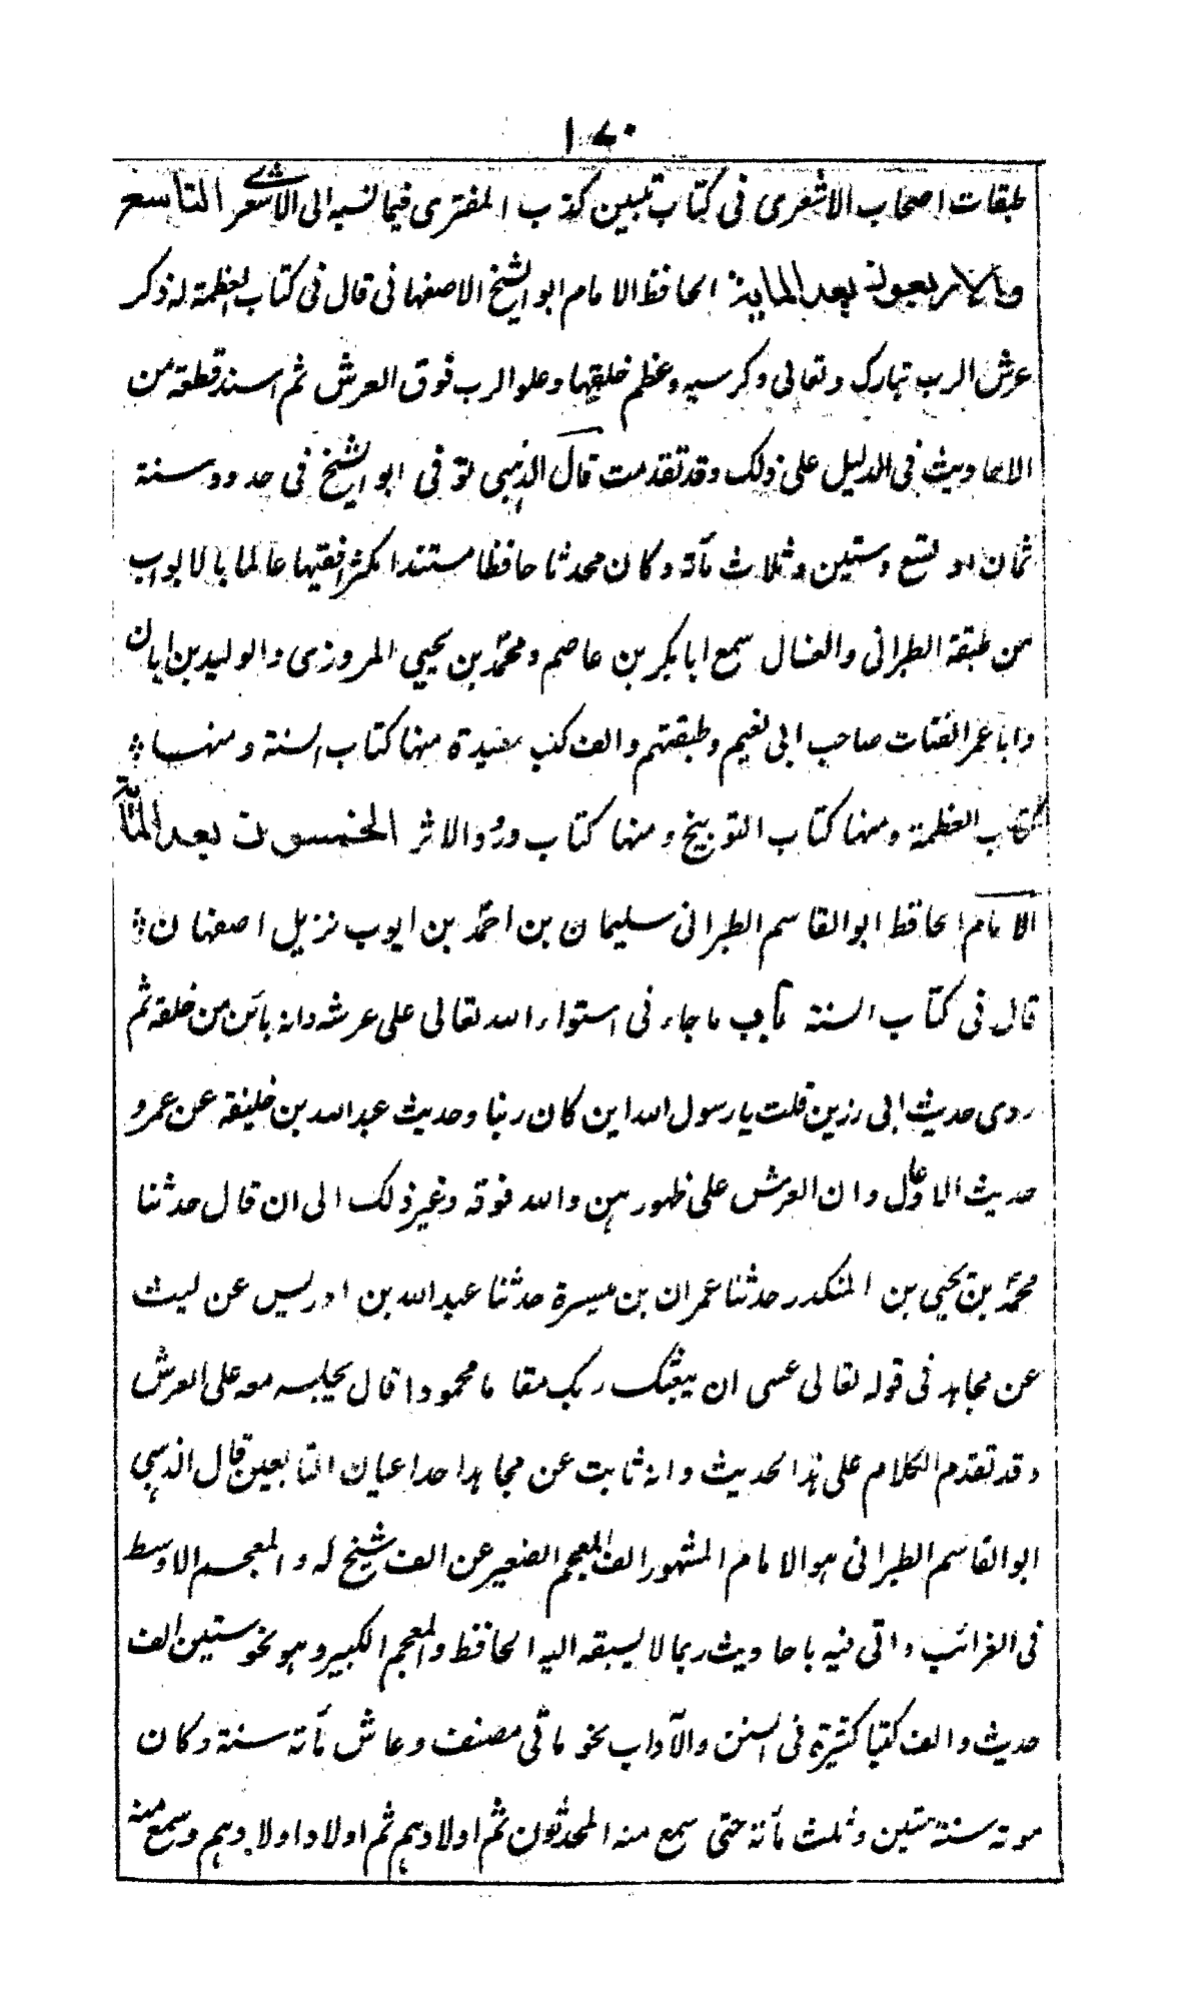 ١٧٠
طبقات اصحاب الاشعرى فى كتاب تبيين كذب المفترى فيما نسبه الى الاشعرى التاسع
والاربعون بعد المایة الحافظ الامام ابو الشیخ الاصفهانى قال فى كتاب العظمة له ذكر
عرش الرب تبارك وتعالى وكرسيه وعظم خلقهما وعلو الرب فوق العرش ثم اسند قطعة من
الاحاديث فى الدليل على ذلك وقد تقدمت قال الذهبى توفى ابو الشيخ فى حدود سنة
ثمان او تسع وستين وثلاث مأة وكان محدثا حافظا مستندا مكثرا فقيها عالما بالابواب
من طبقة الطبرانى والعسال سمع ابا بكر بن عاصم ومحمد بن يحيى المروزى والوليد بن ابان
وابا عمر القتات صاحب ابى نعيم وطبقتهم والف كتب مفيدة منها كتاب السنة ومنها
كتاب العظمة ومنها كتاب التوبيخ ومنها كتاب ورُد الاثر الخمسون بعد المأة
الامام الحافظ ابو القاسم الطبرانى سليمان بن احمد بن ايوب نزيل اصفهان
قال فى كتاب السنة باب ما جاء فى استواء الله تعالى على عرشه وانه بائن من خلقه ثم
روى حديث ابى رزين قلت يا رسول الله اين كان ربنا وحديث عبد الله بن خليفة عن عمر و
حديث الاوعال وان العرش على ظهورهن والله فوقه وغير ذلك الى ان قال حدثنا
محمد بن يحيى بن المنكدر حدثنا عمران بن ميسرة حدثنا عبد الله بن ادريس عن ليث
عن مجاهد فى قوله تعالى عسى ان يبعثك ربك مقاما محمودا قال يجلسه معه على العرش
وقد تقدم الكلام على هذا الحديث وانه ثابت عن مجاهد احد اعيان التابعين قال الذهبى
ابو القاسم الطبرانى هو الامام المشهور الف المعجم الصغير عن الف شيخ له و المعجم الاوسط
فى الغرائب واتى فيه باحاديث ربما لا يسبقه اليه الحافظ والمعجم الكبير وهو نحو ستين الف
حديث والف كتبا كثيرة فى السنن والآداب نحو مأتى مصنف وعاش مأته سنة وكان
موته سنة ستين وثلث مأته حتى سمع منه المحدثون ثم اولادهم ثم اولاد اولادهم وسمع منه